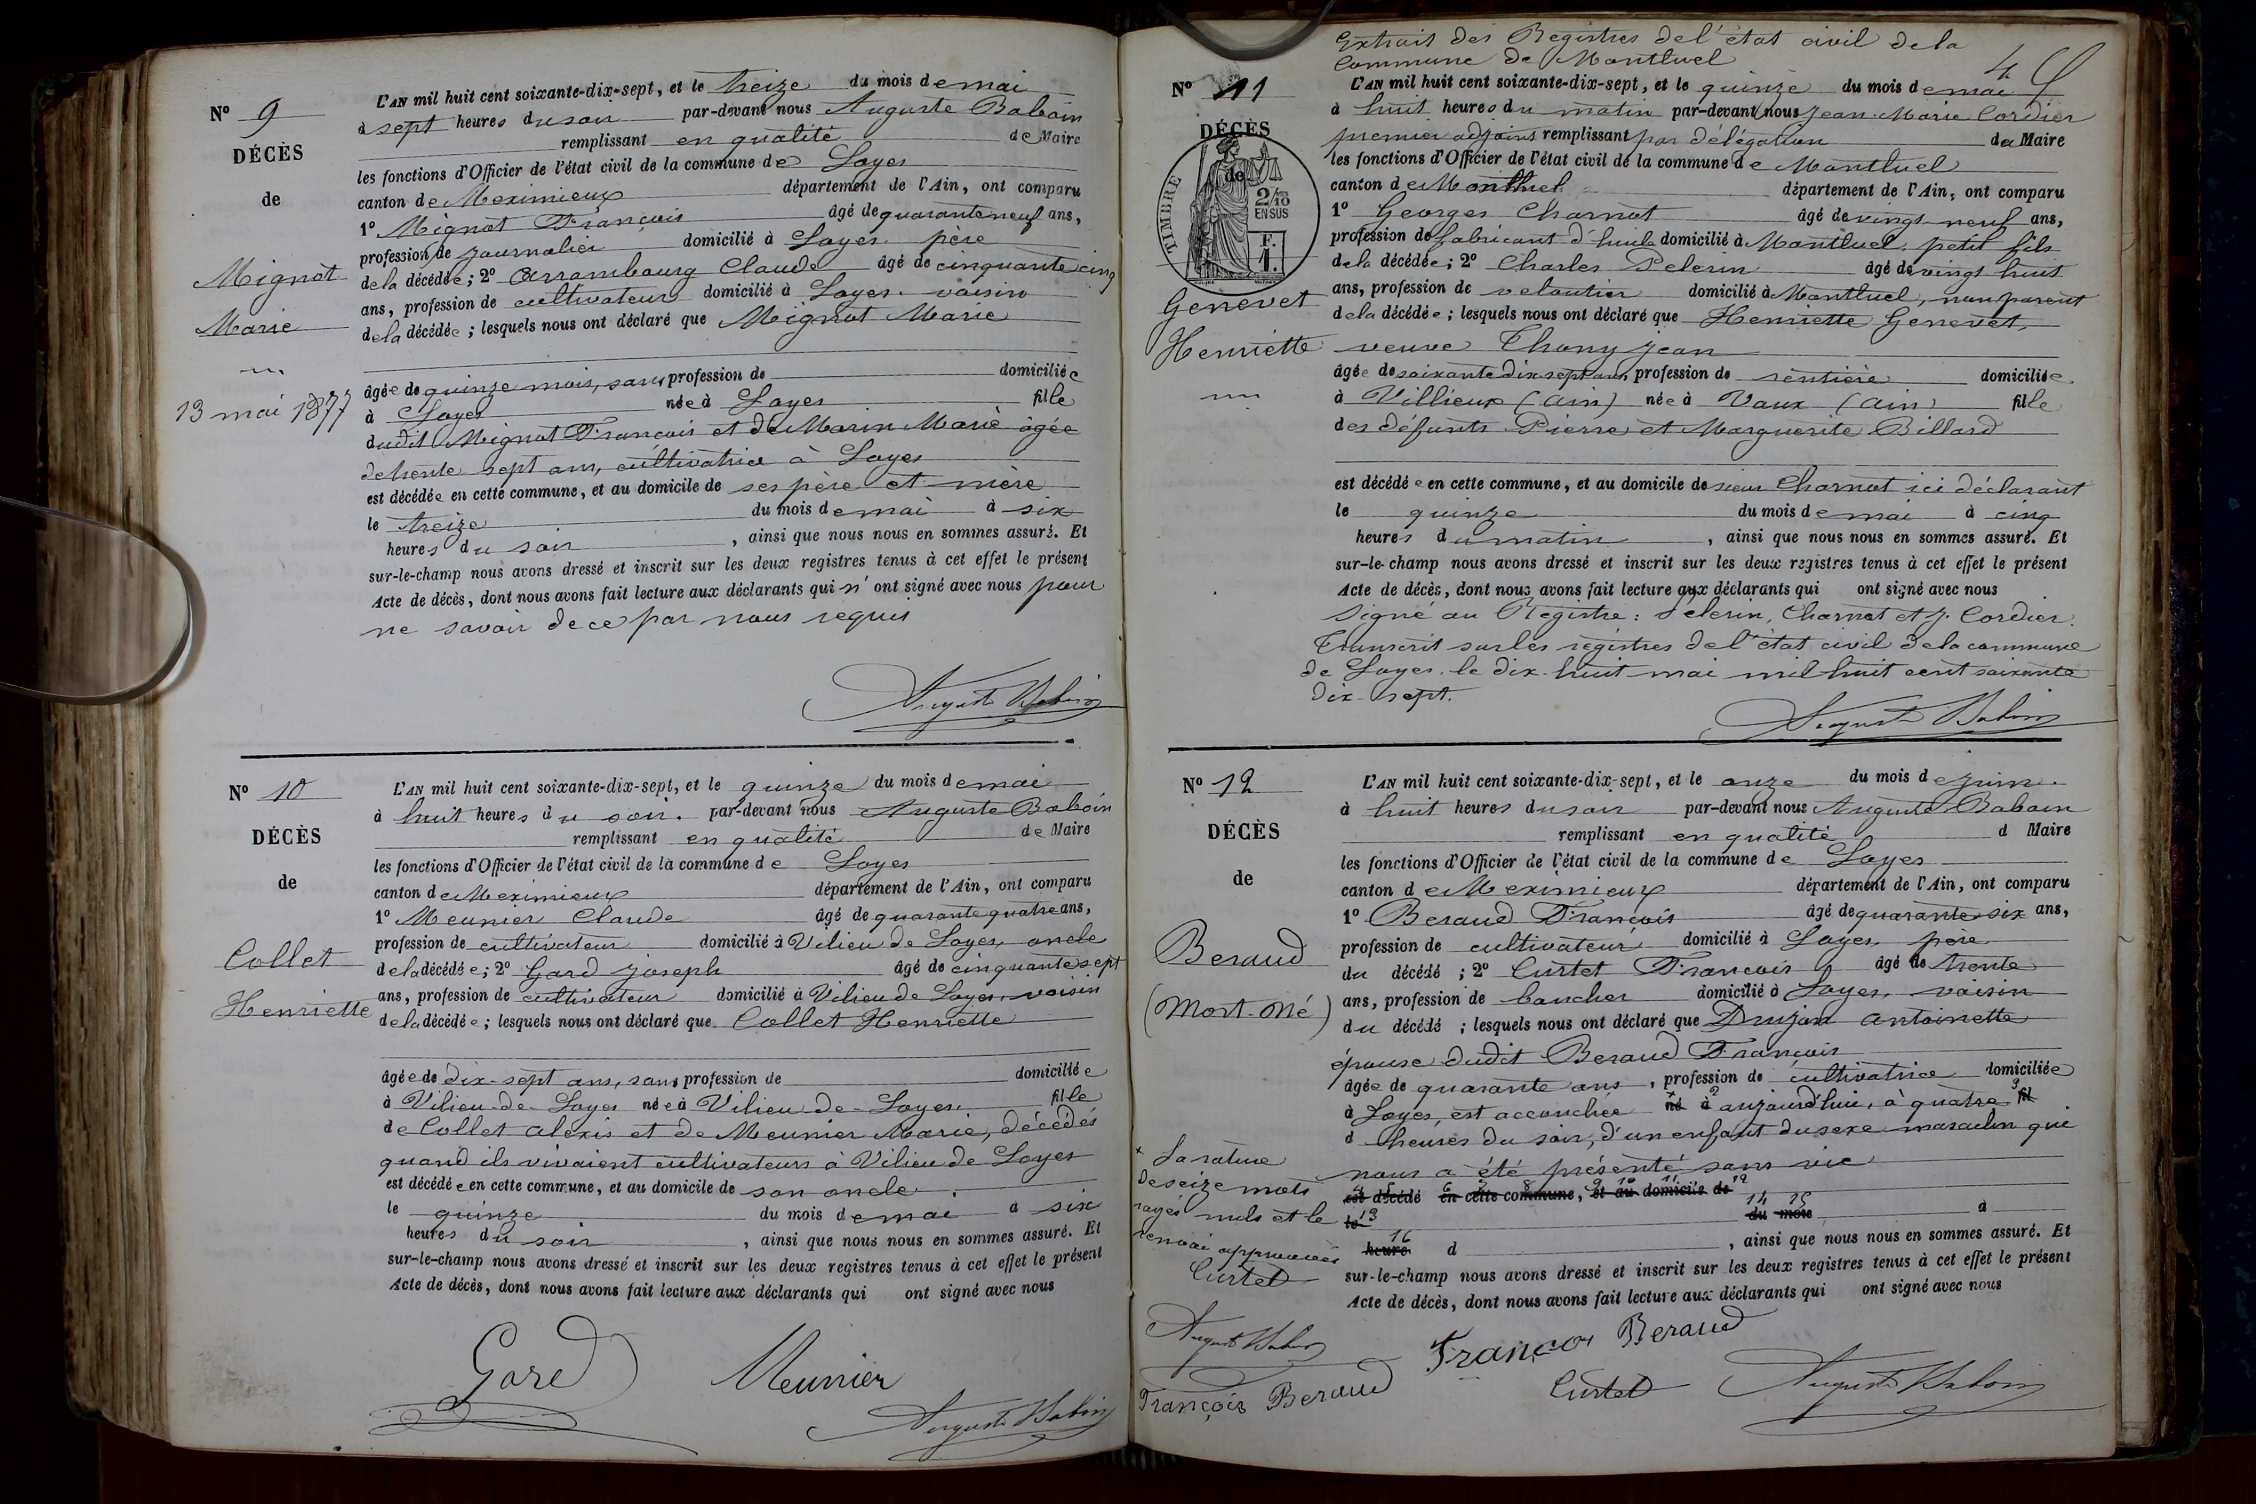 N° 9
DÉCÈS
de
Mignot
Marie
13 mai 1877
L'AN mil huit cent soixante-dix-sept, et le treize du mois de mai
à sept heures du soir par-devant nous Auguste Baboin
remplissant en qualité de Maire
les fonctions d'Officier de l'état civil de la commune de Loyes
canton de Meximieux département de l'Ain, ont comparu
1° Mignot François âgé de quarante neuf ans,
profession de journalier domicilié à Loyes. père
de la décédée; 2° Arrambourg Claude âgé de cinquante cinq
ans, profession de cultivateur domicilié à Loyes. voisin
de la décédée; lesquels nous ont déclaré que Mignot Marie
âgée de quinze mois, sans profession de domiciliée
à Loyes née à Loyes fille
dudit Mignot François et de Marin Marie âgée
de trente sept ans, cultivatrice à Loyes
est décédée en cette commune, et au domicile de ses père et mère
le treize du mois de mai à six
heures du soir, ainsi que nous nous en sommes assuré. Et
sur-le-champ nous avons dressé et inscrit sur les deux registres tenus à cet effet le présent
Acte de décès, dont nous avons fait lecture aux déclarants qui n'ont signé avec nous pour
ne savoir de ce par nous requis
Auguste Baboin
N° 10
DÉCÈS
de
Collet
Henriette
L'AN mil huit cent soixante-dix-sept, et le quinze du mois de mai
à huit heures du soir. par-devant nous Auguste Baboin
remplissant en qualité de Maire
les fonctions d'Officier de l'état civil de la commune de Loyes
canton de Meximieux département de l'Ain, ont comparu
1° Meunier Claude âgé de quarante quatre ans,
profession de cultivateur domicilié à Vilieu de Loyes, oncle
de la décédée; 2° Gard joseph âgé de cinquante sept
ans, profession de cultivateur domicilié à Vilieu de Loyes, voisin
de la décédée; lesquels nous ont déclaré que Collet Henriette
âgée de dix-sept ans, sans profession de domiciliée
à Vilieu-de-Loyes née à Vilieu-de-Loyes. fille
de Collet Alexis et de Meunier Marie, décédés
quand ils vivaient cultivateurs à Vilieu de Loyes
est décédée en cette commune, et au domicile de son oncle.
le quinze du mois de mai à six
heures du soir, ainsi que nous nous en sommes assuré. Et
sur-le-champ nous avons dressé et inscrit sur les deux registres tenus à cet effet le présent
Acte de décès, dont nous avons fait lecture aux déclarants qui ont signé avec nous
Gard Meunier
Auguste Baboin
Extrait des Registres de l'état civil de la
Commune de Montluel
4
N° 11
DÉCÈS
de
TIMBRE
2/10
EN SUS
F.
1.
Genevet
Henriette
L'AN mil huit cent soixante-dix-sept, et le quinze du mois de mai
à huit heures du matin par-devant nous Jean Marie Cordier
premier adjoint remplissant par délégation du Maire
les fonctions d'Officier de l'état civil de la commune de Montluel
canton de Montluel département de l'Ain, ont comparu
1° Georges Charnot âgé de vingt neuf ans,
profession de fabricant d'huile domicilié à Montluel, petit fils
de la décédée; 2° Charles Pelerin âgé de vingt huit
ans, profession de veloutier domicilié à Montluel, non parent
de la décédée; lesquels nous ont déclaré que Henriette Genevet,
veuve Thony jean
âgée de soixante dix sept ans, profession de rentière domiciliée
à Villieux (ain) née à Vaux (ain) fille
des défunts Pierre et Marguerite Billard
est décédée en cette commune, et au domicile de sieur Charnot ici déclarant
le quinze du mois de mai à cinq
heures du matin, ainsi que nous nous en sommes assuré. Et
sur-le-champ nous avons dressé et inscrit sur les deux registres tenus à cet effet le présent
Acte de décès, dont nous avons fait lecture aux déclarants qui ont signé avec nous
Signé au Registre: Pelerin, Charnot et J. Cordier.
Transcrit sur les registres de l'état civil de la commune
de Loyes, le dix-huit mai mil huit cent soixante
dix-sept.
Auguste Baboin
N° 12
DÉCÈS
de
Beraud
(Mort-Né)
L'AN mil huit cent soixante-dix-sept, et le onze du mois de juin.
à huit heures du soir par-devant nous Auguste Baboin
remplissant en qualité d Maire
les fonctions d'Officier de l'état civil de la commune de Loyes
canton de Meximieux département de l'Ain, ont comparu
1° Beraud François âgé de quarante six ans,
profession de cultivateur domicilié à Loyes, père
du décédé; 2° Curtet François âgé de trente
ans, profession de boucher domicilié à Loyes, voisin
du décédé; lesquels nous ont déclaré que Dujon Antoinette
épouse dudit Beraud François
âgée de quarante ans, profession de cultivatrice domiciliée
à Loyes, est accouchée né à 2 aujourd'hui, à quatre fil 3
d heures du soir, d'un enfant du sexe masculin qui
nous a été présenté sans vie
est décédé en cette commune, et au domicile de 12
le 13 du mois à
heure 16 d , ainsi que nous nous en sommes assuré. Et
sur-le-champ nous avons dressé et inscrit sur les deux registres tenus à cet effet le présent
Acte de décès, dont nous avons fait lecture aux déclarants qui ont signé avec nous
x La rature
de seize mots
rayés nuls et le
renvoi approuvés
Curtet
Auguste Baboin
François Beraud
François Beraud
Curtet
Auguste Baboin